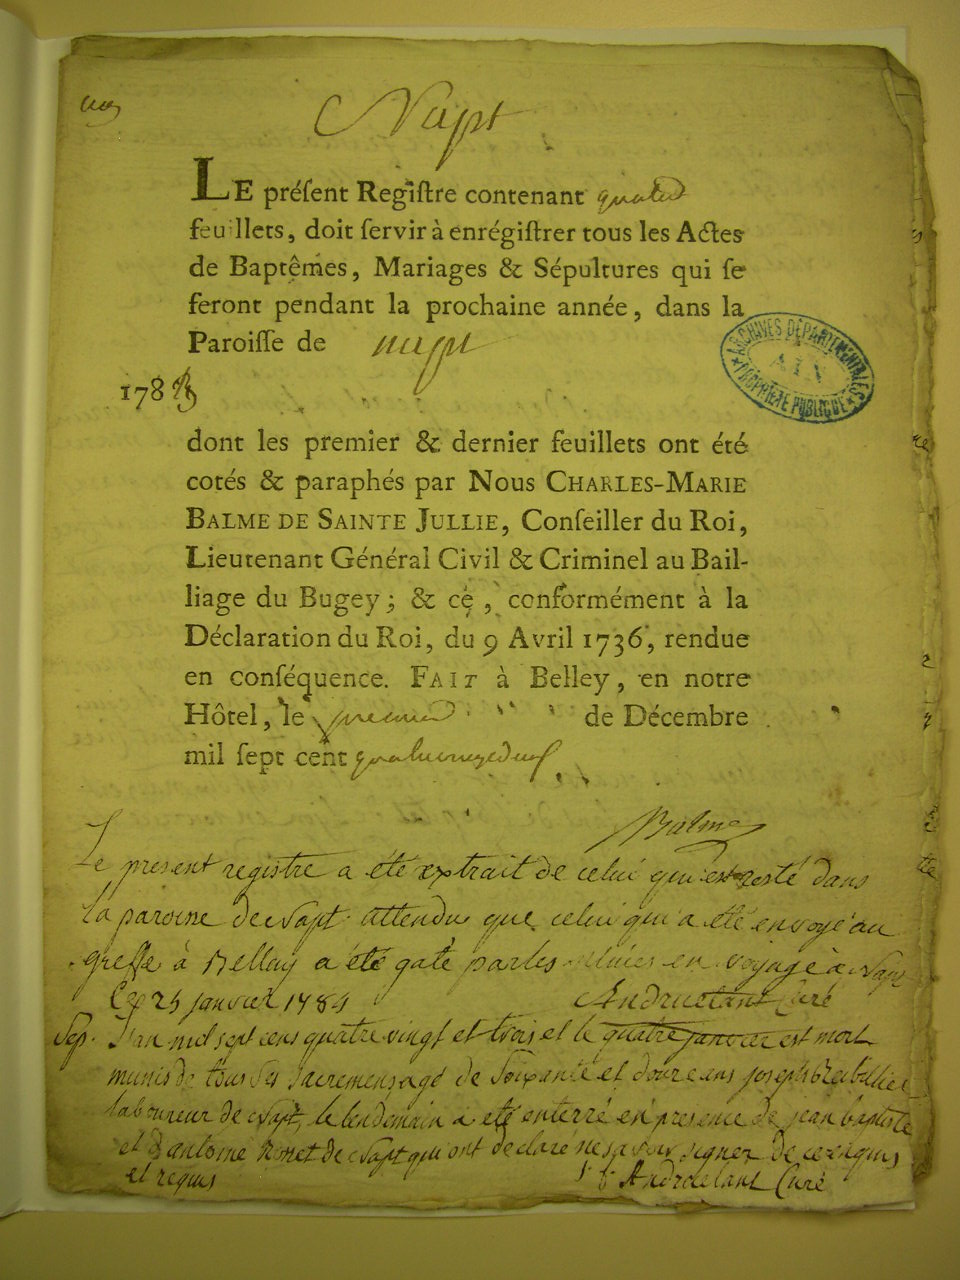 Napt
LE préſent Regiſtre contenant quatre
feuillets, doit ſervir à enrégiſtrer tous les Actes
de Baptêmes, Mariages & Sépultures qui ſe
feront pendant la prochaine année, dans la
Paroiſſe de napt
ARCHIVES DÉPARTEMENTALES
AIN
PROPRIÉTÉ PUBLIQUE
1783
dont les premier & dernier feuillets ont été
cotés & paraphés par Nous CHARLES-MARIE
BALME DE SAINTE JULLIE, Conſeiller du Roi,
Lieutenant Général Civil & Criminel au Bail-
liage du Bugey; & ce, conformément à la
Déclaration du Roi, du 9 Avril 1736, rendue
en conſéquence. FAIT à Belley, en notre
Hôtel, le premier de Décembre
mil ſept cent quatrevingtdeux
Balme
Le present registre a été extrait de celui qui est resté dans
la paroisse de Napt attendu que celui qui a été envoyé au
greffe à Belley a été gaté par les pluies en voyage à Napt
le 25 janvier 1784 Andruetant Curé
Sep. L'an mil sept cens quatre vingt et trois et le quatre janvier est mort
munis de tous ses sacremens agé de soixante et douze ans joseph
laboureur de Napt, le lendemain a eté enterré en presence de jean baptiste
et d'antoine de Napt qui ont declaré ne savoir signer de ce enquis
et requis Andruetant Curé